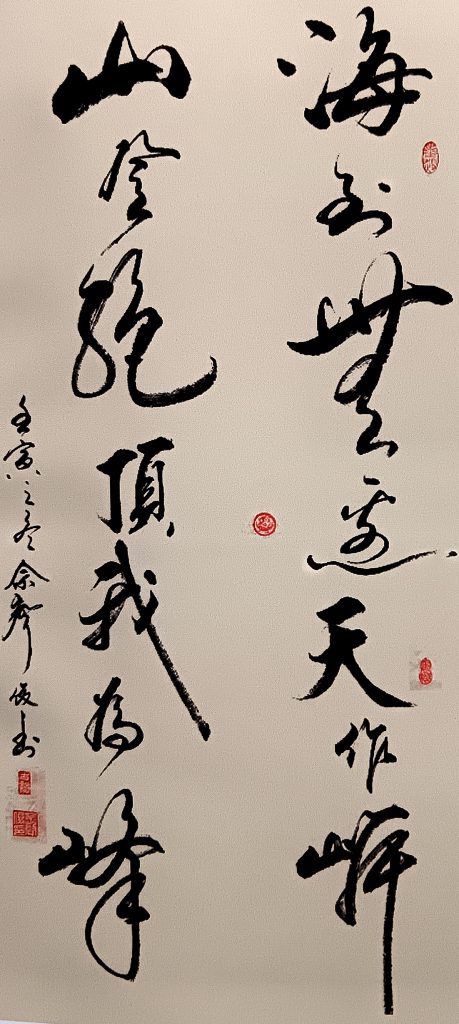 海到無邊天作岸
山登絕頂我為峰
壬寅之冬